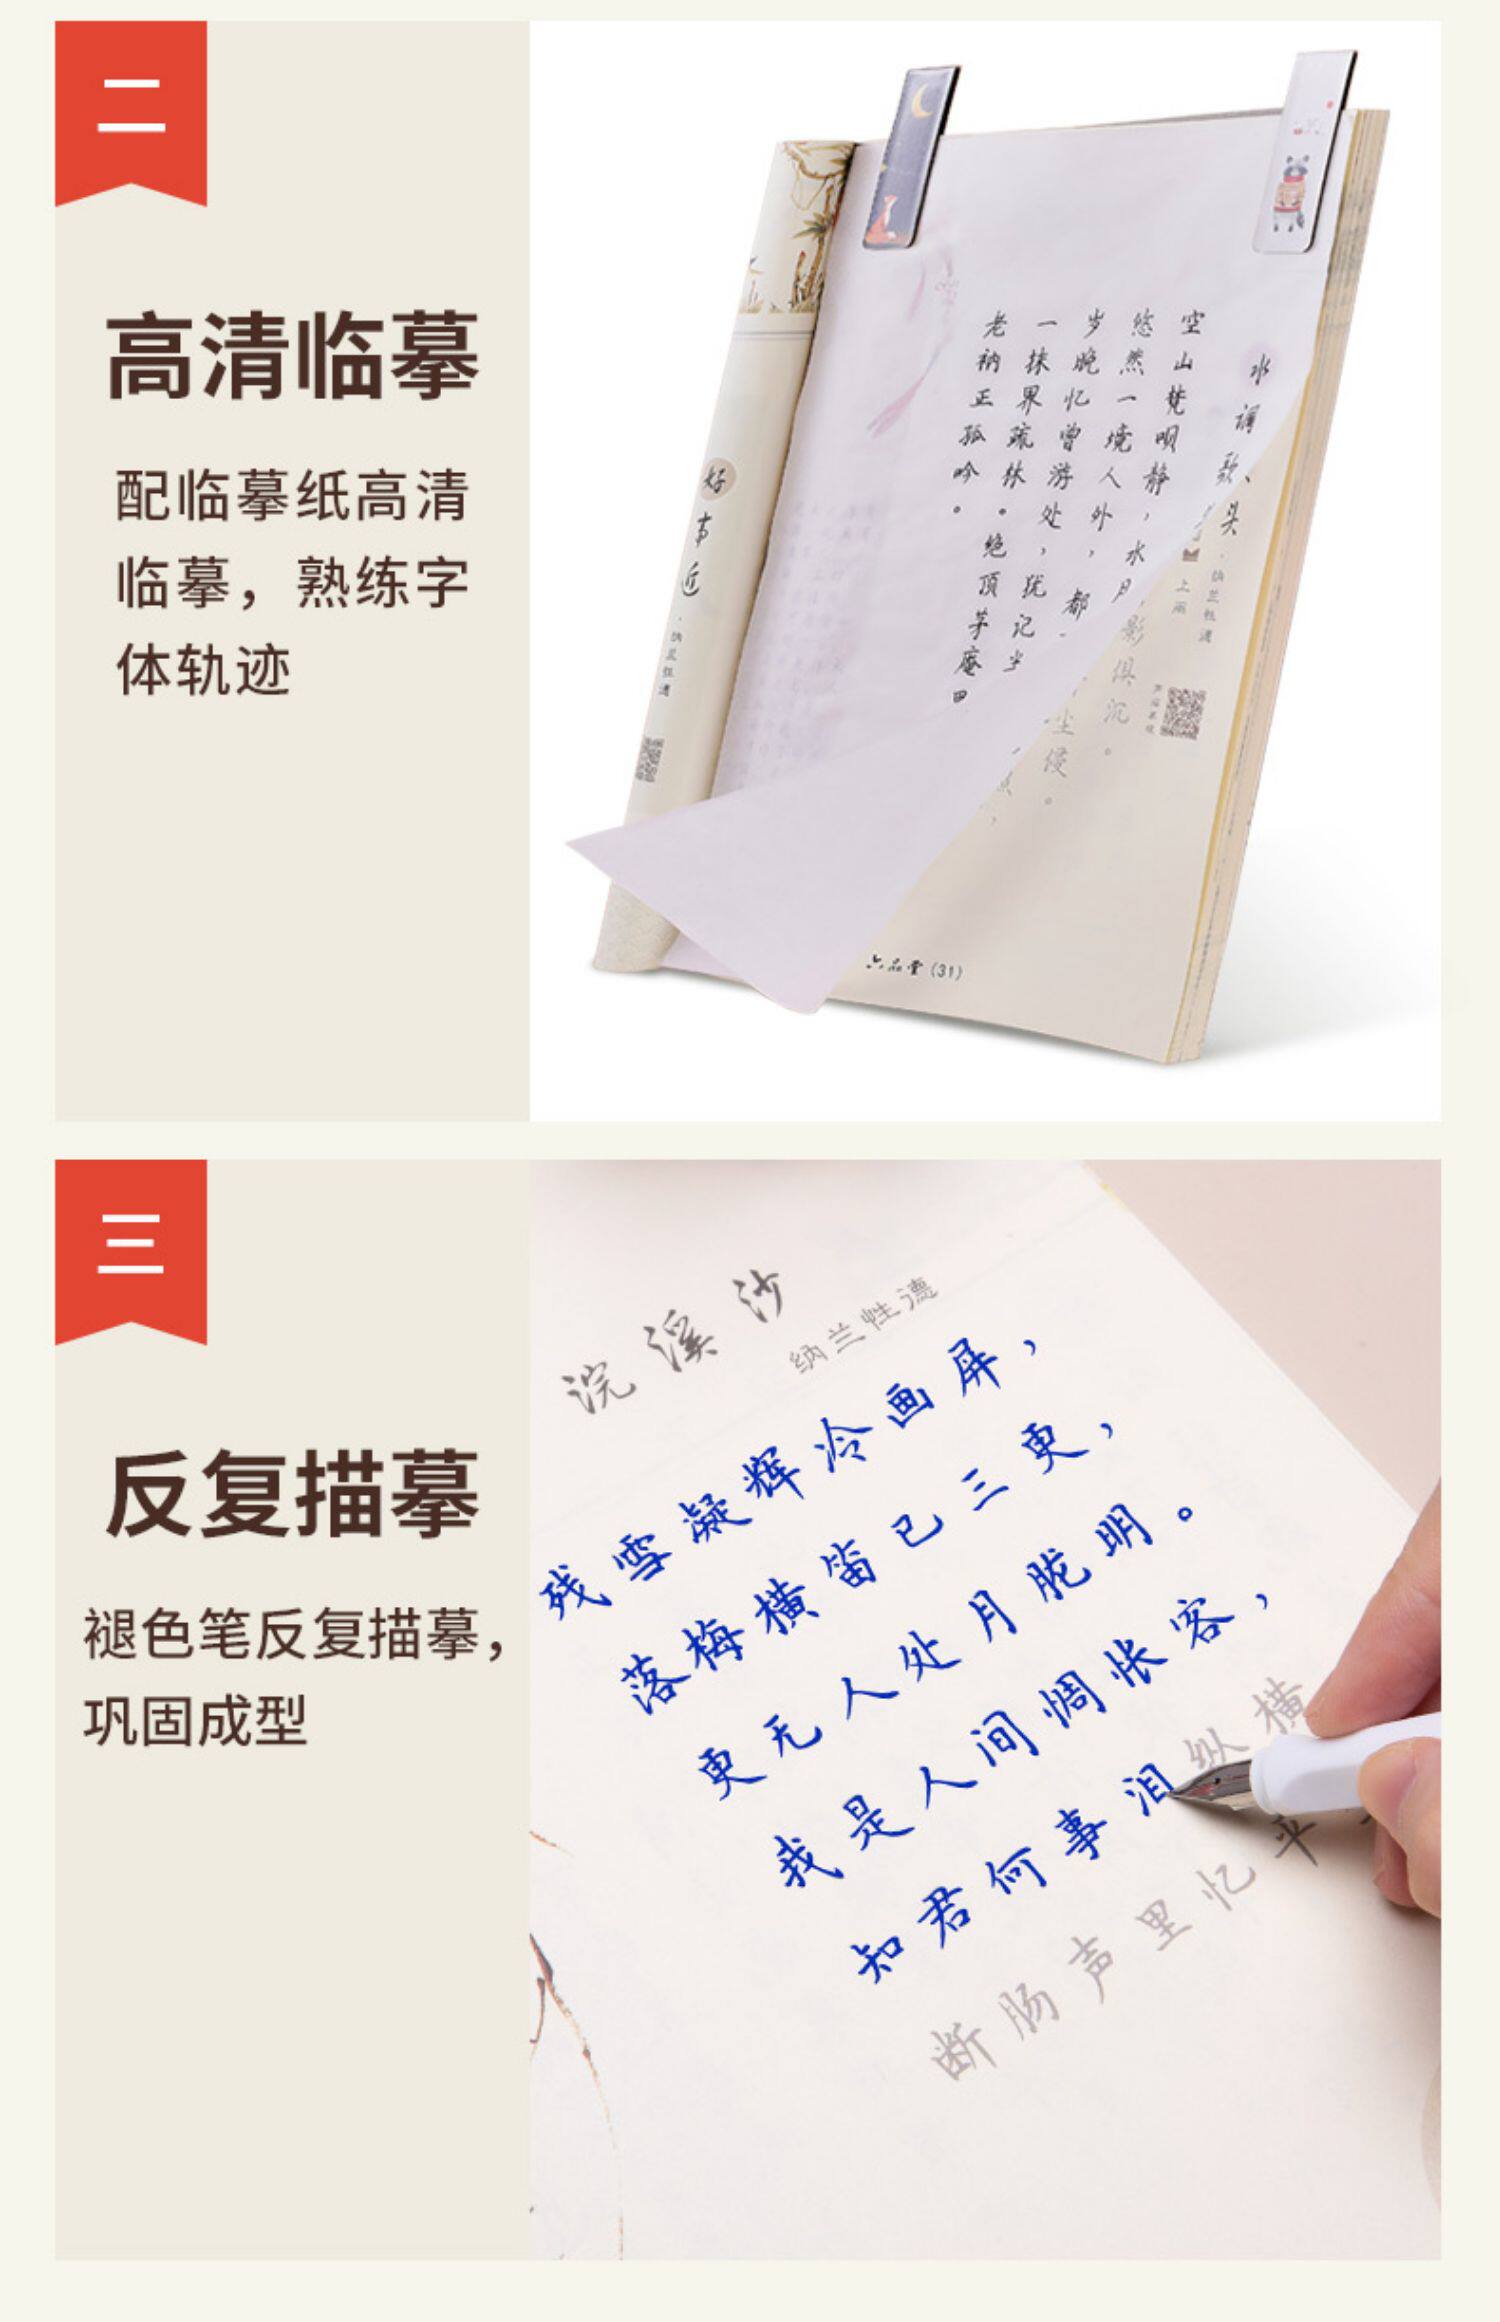 二
高清临摹
配临摹纸高清
临摹，熟练字
体轨迹
水调歌头
·纳兰性德
空山梵呗静，水月影俱沉。
悠然一境人外，都
尘侵。
岁晚忆曾游处，犹记半
一抹界疏林。绝顶茅庵
老衲正孤吟。
好事近
·纳兰性德
六品堂(31)
三
反复描摹
褪色笔反复描摹，
巩固成型
浣溪沙
纳兰性德
残雪凝辉冷画屏，
落梅横笛已三更，
更无人处月胧明。
我是人间惆怅客，
知君何事泪纵横
断肠声里忆平